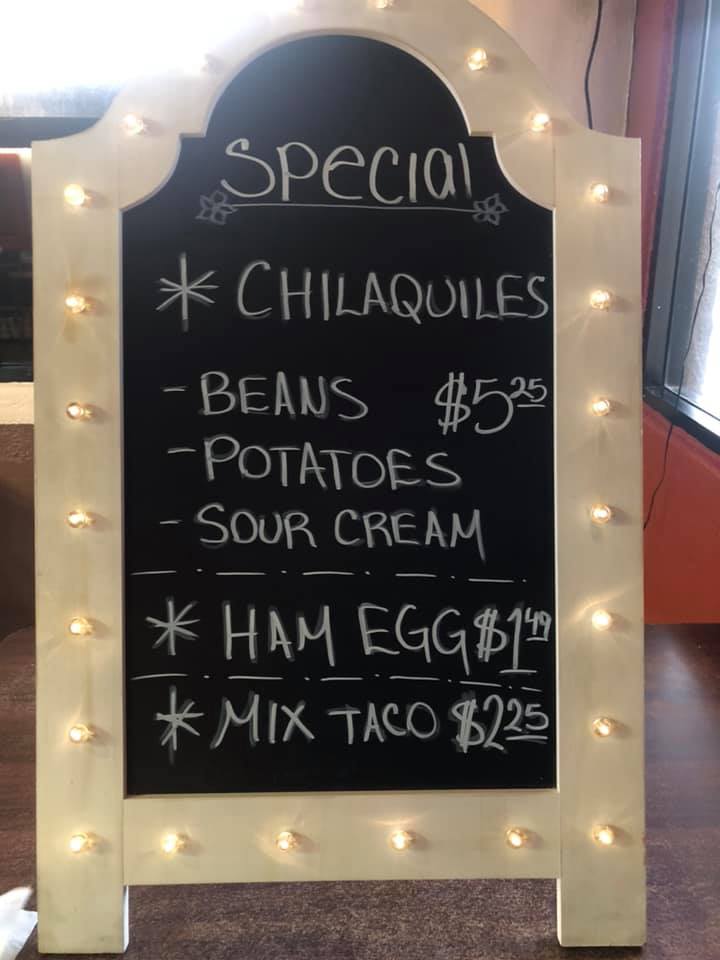 Special
* CHILAQUILES
- BEANS $5 25
- POTATOES
- SOUR CREAM
* HAM EGG $1 49
* MIX TACO $2 25